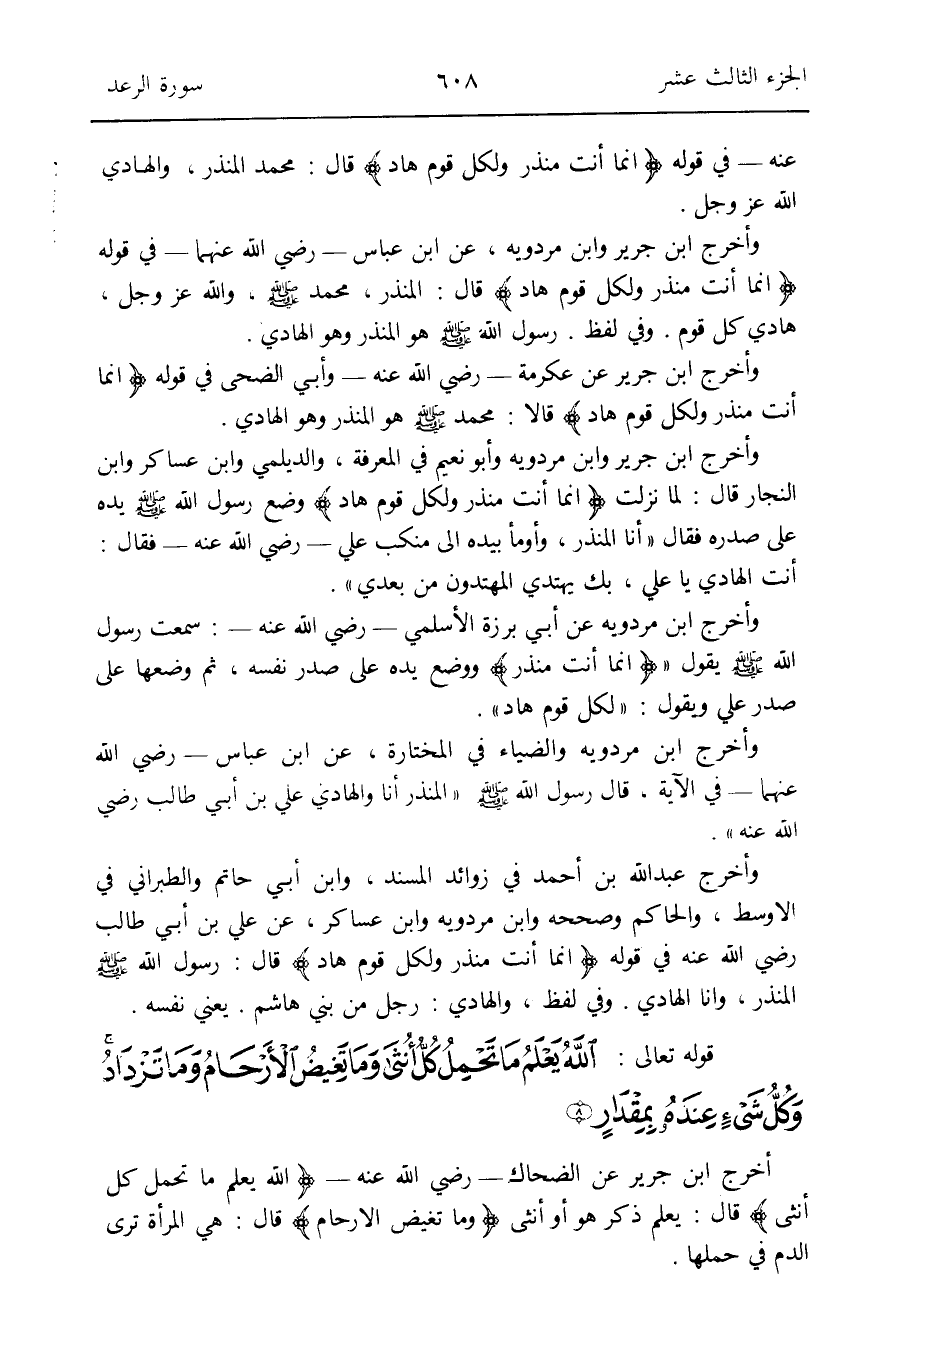 الجزء الثالث عشر ٦٠٨ سورة الرعد
عنه — في قوله ﴿ انما أنت منذر ولكل قوم هاد ﴾ قال : محمد المنذر ، والهادي
الله عز وجل .
وأخرج ابن جرير وابن مردويه ، عن ابن عباس — رضي الله عنهما — في قوله
﴿ انما أنت منذر ولكل قوم هاد ﴾ قال : المنذر ، محمد ﷺ ، والله عز وجل ،
هادي كل قوم . وفي لفظ . رسول الله ﷺ هو المنذر وهو الهادي .
وأخرج ابن جرير عن عكرمة — رضي الله عنه — وأبي الضحى في قوله ﴿ انما
أنت منذر ولكل قوم هاد ﴾ قالا : محمد ﷺ هو المنذر وهو الهادي .
وأخرج ابن جرير وابن مردويه وأبو نعيم في المعرفة ، والديلمي وابن عساكر وابن
النجار قال : لما نزلت ﴿ انما أنت منذر ولكل قوم هاد ﴾ وضع رسول الله ﷺ يده
على صدره فقال «أنا المنذر ، وأومأ بيده الى منكب علي — رضي الله عنه — فقال :
أنت الهادي يا علي ، بك يهتدي المهتدون من بعدي» .
وأخرج ابن مردويه عن أبي برزة الأسلمي — رضي الله عنه — : سمعت رسول
الله ﷺ يقول «﴿ انما أنت منذر ﴾ ووضع يده على صدر نفسه ، ثم وضعها على
صدر علي ويقول : «لكل قوم هاد» .
وأخرج ابن مردويه والضياء في المختارة ، عن ابن عباس — رضي الله
عنهما — في الآية . قال رسول الله ﷺ «المنذر أنا والهادي علي بن أبي طالب رضي
الله عنه» .
وأخرج عبدالله بن أحمد في زوائد المسند ، وابن أبي حاتم والطبراني في
الاوسط ، والحاكم وصححه وابن مردويه وابن عساكر ، عن علي بن أبي طالب
رضي الله عنه في قوله ﴿ انما أنت منذر ولكل قوم هاد ﴾ قال : رسول الله ﷺ
المنذر ، وانا الهادي . وفي لفظ ، والهادي : رجل من بني هاشم . يعني نفسه .
قوله تعالى : ٱللَّهُ يَعۡلَمُ مَا تَحۡمِلُ كُلُّ أُنثَىٰ وَمَا تَغِيضُ ٱلۡأَرۡحَامُ وَمَا تَزۡدَادُۚ
وَكُلُّ شَيۡءٍ عِندَهُۥ بِمِقۡدَارٍ ۝٨
أخرج ابن جرير عن الضحاك — رضي الله عنه — ﴿ الله يعلم ما تحمل كل
أنثى ﴾ قال : يعلم ذكر هو أو أنثى ﴿ وما تغيض الارحام ﴾ قال : هي المرأة ترى
الدم في حملها .